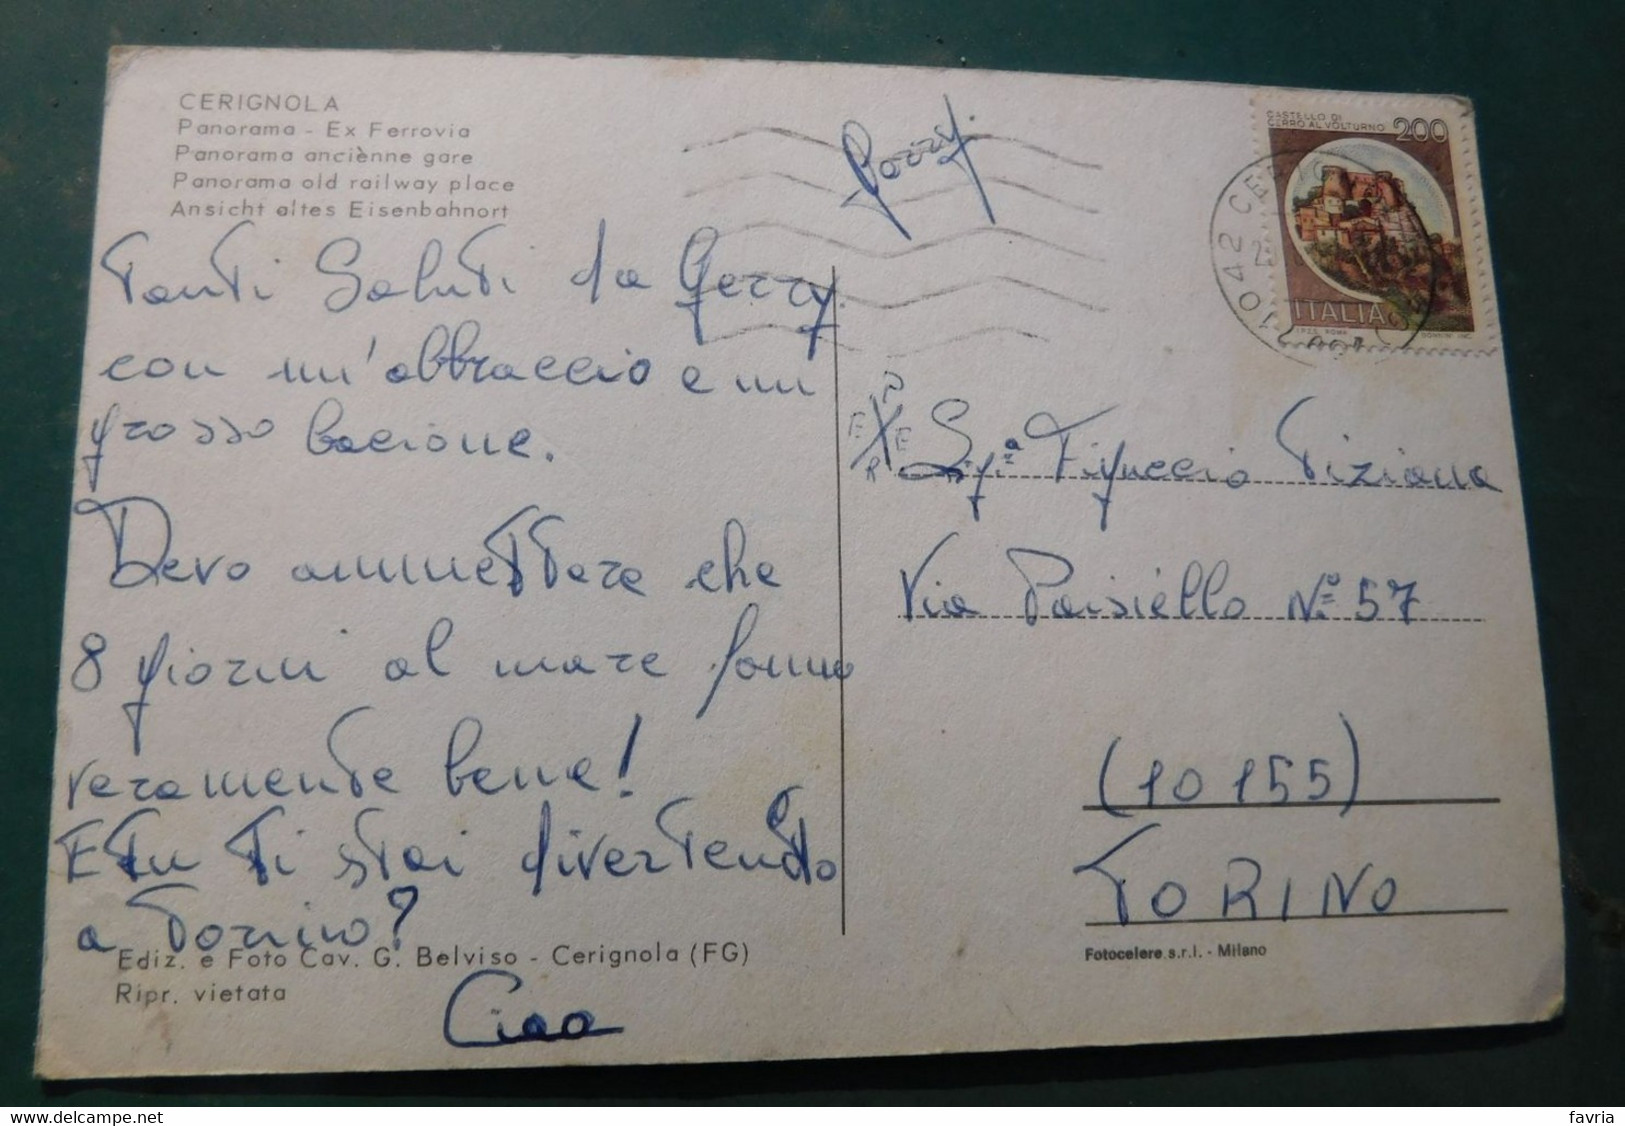 CERIGNOLA
Panorama - Ex Ferrovia
Panorama anciènne gare
Panorama old railway place
Ansicht altes Eisenbahnort
Gerry.
CASTELLO DI
CERRO AL VOLTURNO 200
ITALIA
Tanti Saluti da Gerry.
con un'abbraccio e un
grosso bacione.
Devo ammettere che
8 giorni al mare fanno
veramente bene!
E tu ti stai divertendo
a Torino?
Ciao
Sig.ª Figuccio Tiziana
Via Paisiello N.º 57
(10155)
TORINO
Ediz. e Foto Cav. G. Belviso - Cerignola (FG)
Ripr. vietata
Fotocelere s.r.l. - Milano
www.delcampe.net
favria